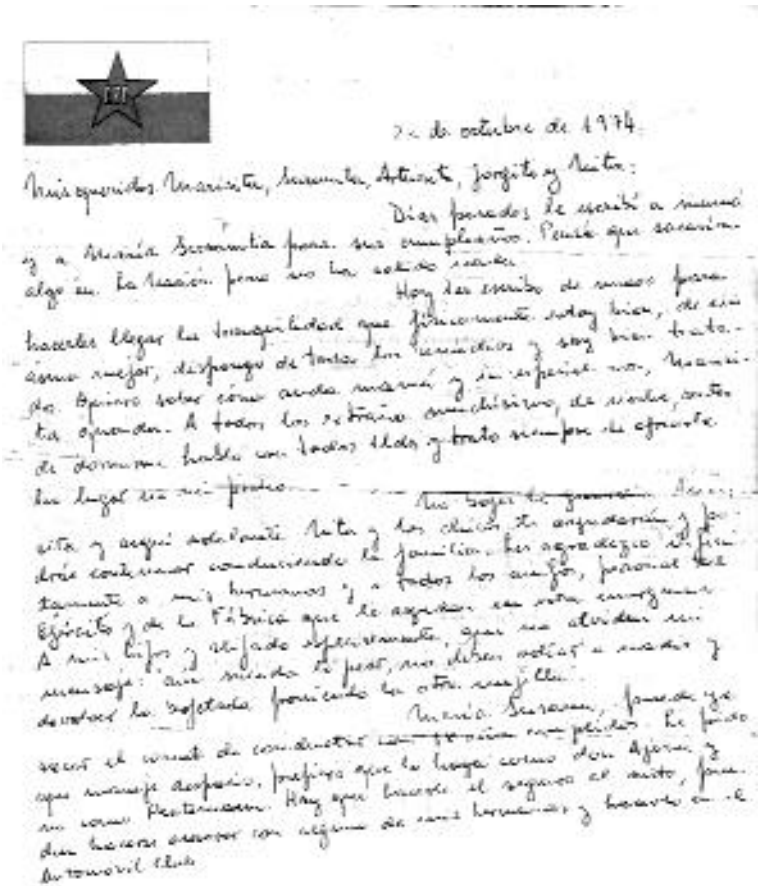 de octubre de 1974.
Mis queridos Marixita, Susanita, Arturito, Jorgito y Nita:
Días pasados le escribí a mamá
y a María Susanita para sus cumpleaños. Pensé que sacarían
algo en La Nación pero no ha salido nada.
Hoy les escribo de nuevo para
hacerles llegar la tranquilidad que físicamente estoy bien, de
asma mejor, dispongo de todos los remedios y soy bien trata-
do. Quiero saber cómo anda mamá y en especial vos,
A todos los extraño muchísimo, de noche, antes
de dormirme hablo con todos Uds y trato siempre de
su lugar en mi
No aflojes
sita y seguí adelante Nita y los chicos te ayudarán y po-
drás continuar conduciendo la familia. Les agradezco infini-
tamente a mis hermanos y a todos los amigos, personal del
Ejército y de la Fábrica que le ayudan en esta emergencia
A mis hijos y ahijado especialmente, que no olviden mi
mensaje: aún suceda lo peor, no deben odiar a nadie y
devolver la bofetada poniendo la otra mejilla.
María Susana, puede ya
sacar el carnet de conductor
que maneje despacio, prefiero que lo haga como don
no como Hay que hacerle el seguro al auto, pue-
den hacerse asesorar con alguno de mis hermanos y hacerlo en el
Automóvil Club